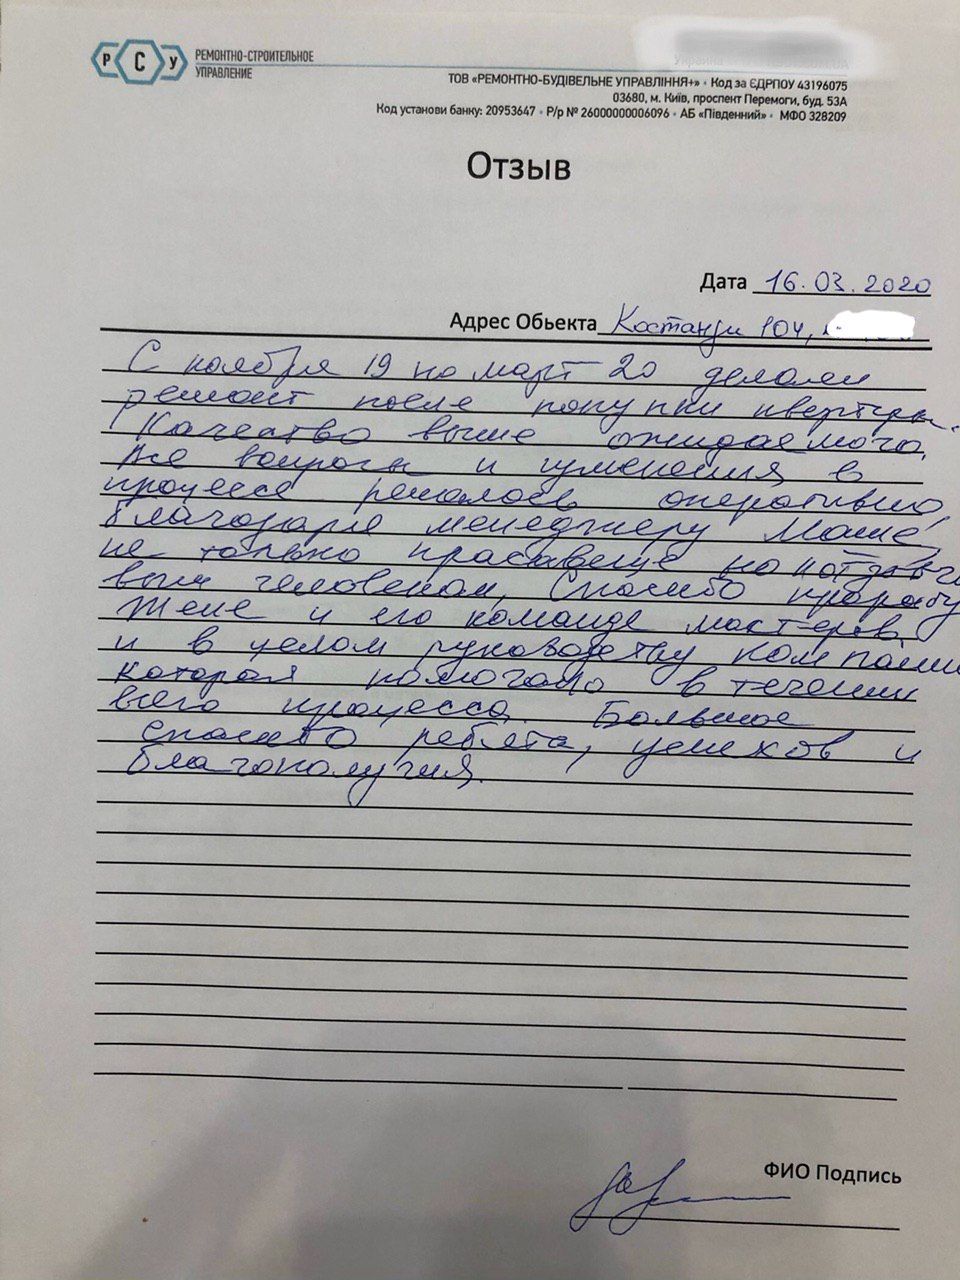 Р С У РЕМОНТНО-СТРОИТЕЛЬНОЕ
УПРАВЛЕНИЕ
Украина
ТОВ «РЕМОНТНО-БУДІВЕЛЬНЕ УПРАВЛІННЯ+» • Код за ЄДРПОУ 43196075
03680, м. Київ, проспект Перемоги, буд. 53А
Код установи банку: 20953647 • Р/р № 26000000006096 • АБ «Південний» • МФО 328209
Отзыв
Дата 16.03.2020
Адрес Обьекта Костанди 104,
С ноября 19 по март 20 делали
ремонт после покупки квартиры.
Качество выше ожидаемого,
все вопросы и изменения в
процессе решалось оперативно,
благодаря менеджеру Маше,
не только красавице но и
человеком, Спасибо прорабу
Жене и его команде мастеров
и в целом руководству компании
которая помогало в течении
всего процесса. Большое
спасибо ребята, успехов и
благополучия.
ФИО Подпись